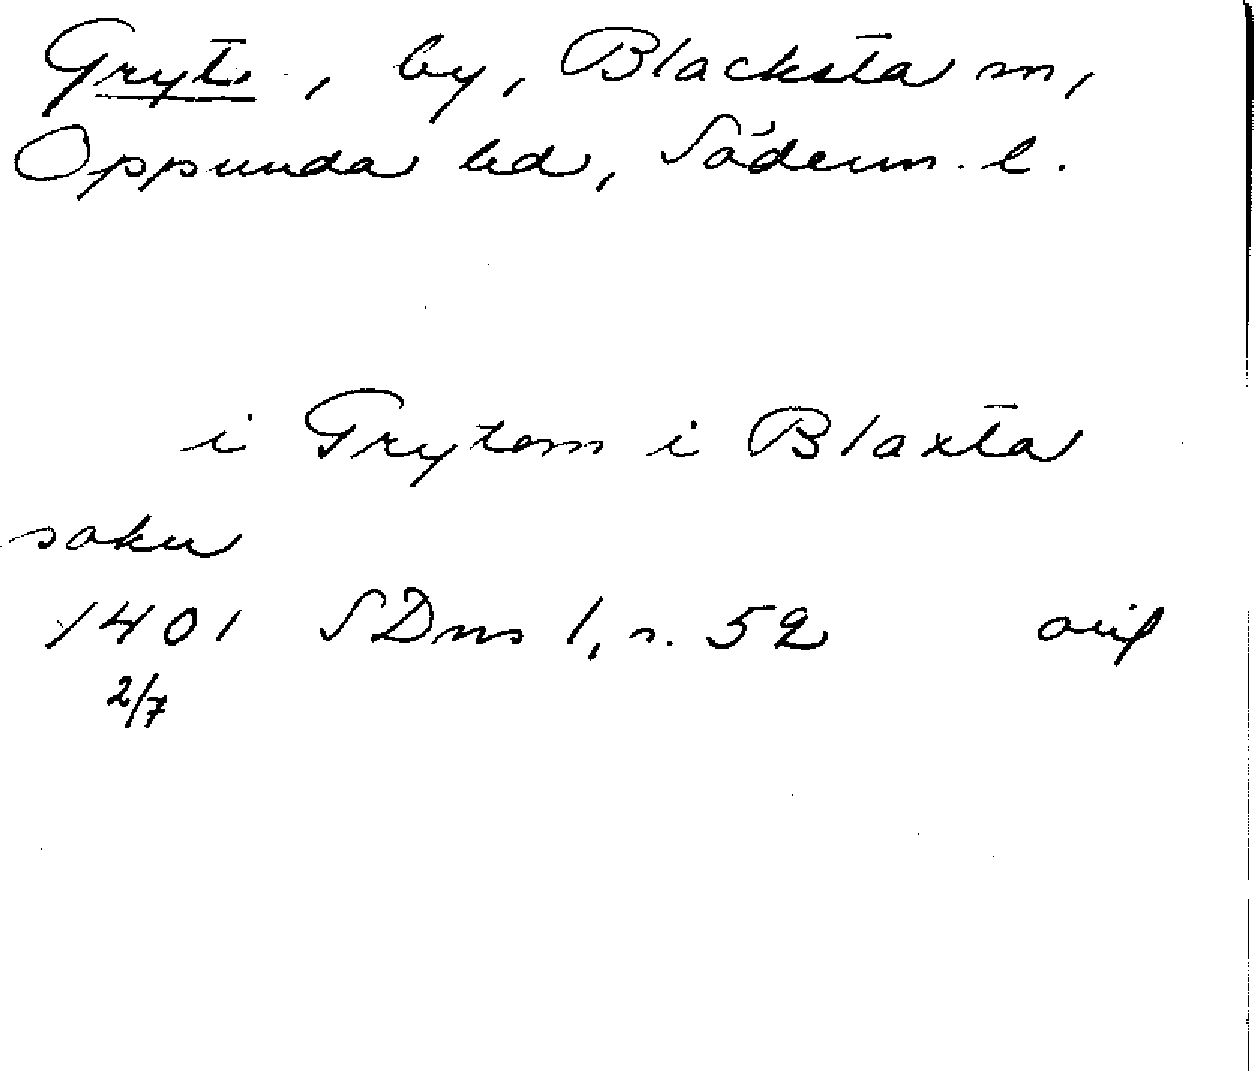 Gryt, by, Blacksta sn,
Oppunda hd, Söderm. l.
i Grytom i Blaxta
sokn
1401 SDns 1, s. 52 orig
2/7